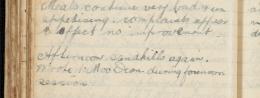 Meals continue very bad & un
appetising, complaints appear
to effect no improvement.
Afternoon sandhills again.
Wrote Moo Dean during forenoon
session.